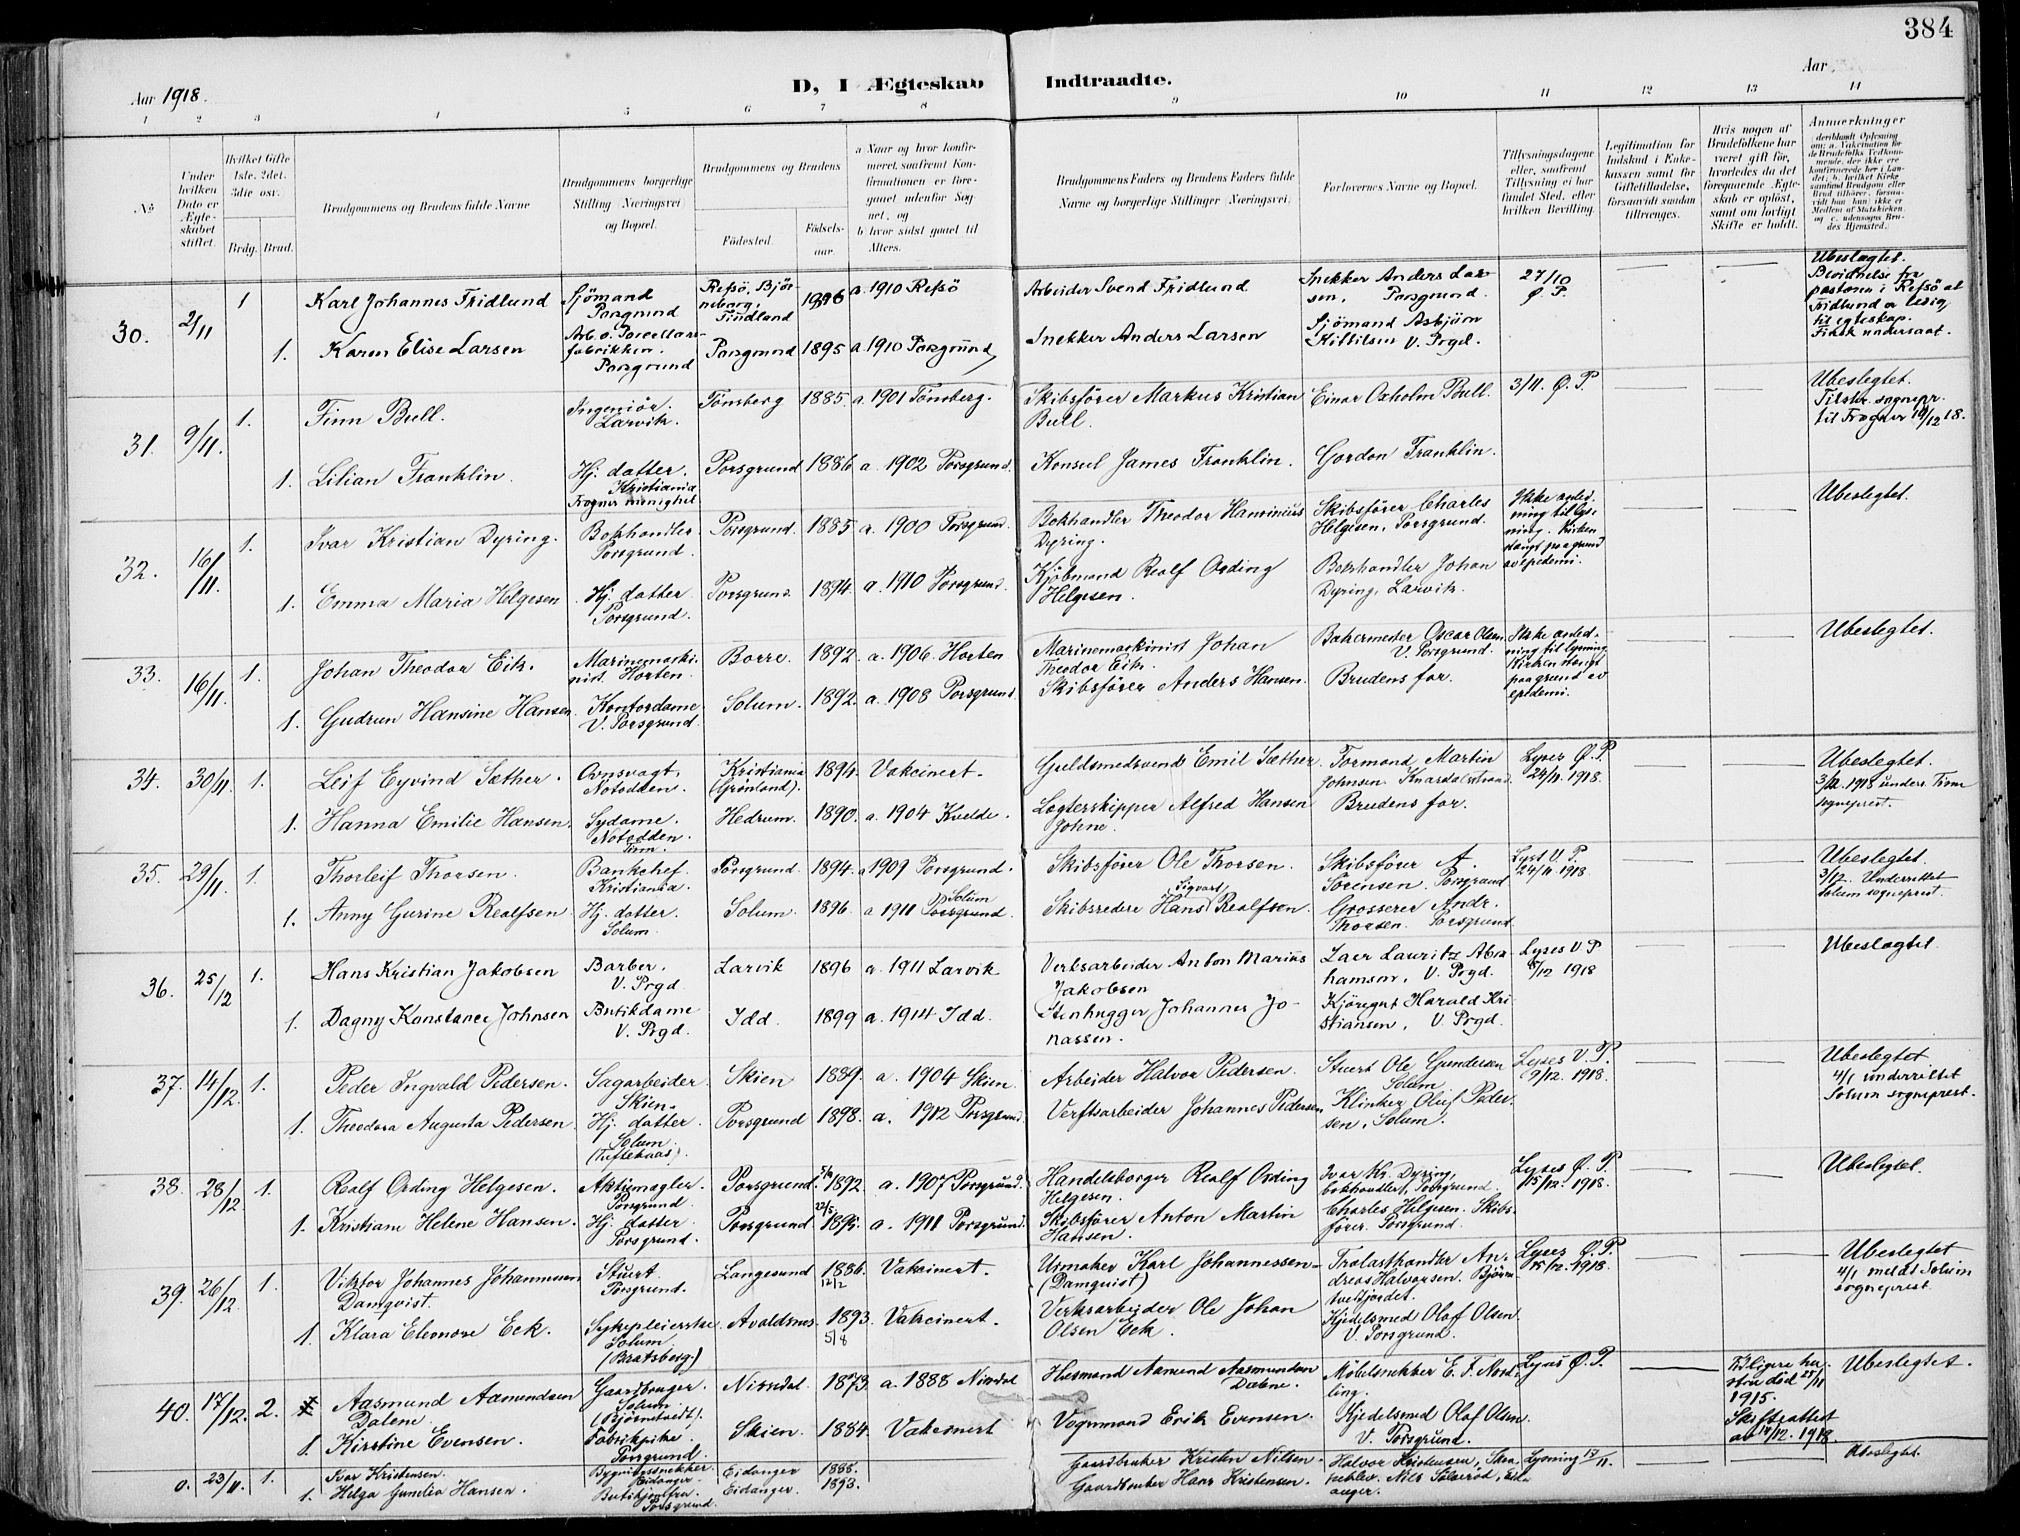 384
Aar 1918.
D, I Ægteskab Indtraadte.
Aar
1 2 3 4 5 6 7 8 9 10 11 12 13 14
No
Under hvilken Dato er Ægteskabet stiftet.
Hvilket Gifte 1ste, 2det, 3die osv.
Brdg. Brud.
Brudgommens og Brudens fulde Navne
Brudgommens borgerlige Stilling (Næringsvei) og Bopæl.
Brudgommens og Brudens
Fødested.
Fødselsaar.
a Naar og hvor konfirmeret, saafremt Konfirmationen er foregaaet udenfor Sognet, og
b hvor sidst gaaet til Alters.
Brudgommens Faders og Brudens Faders fulde Navne og borgerlige Stillinger (Næringsvei).
Forlovernes Navne og Bopæl.
Tillysningsdagene eller, saafremt Tillysning ei har fundet Sted, efter hvilken Bevilling.
Legitimation for Indskud i Enkekassen samt for Giftetilladelse, forsaavidt saadan tiltrænges.
Hvis nogen af Brudefolkene har været gift før, hvorledes da det foregaaende Ægteskab er opløst, samt om lovligt Skifte er holdt.
Anmerkninger
deriblandt Oplysning om: a. Vakcination for de Brudefolks Vedkommende, der ikke ere konfirmerede her i Landet; b. hvilket Kirkesamfund Brudgom eller Brud tilhører, forsaavidt han (hun) ikke er Medlem af Statskirken, og c. udensogns Brudes Hjemsted.
30. 2/11 1 Karl Johannes Fridlund Sjömand Porsgrund Refsö, Björneborg, Findland 1896 a. 1910 Refsö Arbeider Svend Fridlund Snekker Anders Larsen, Porsgrund. 27/10 Ø. P. Ubeslægtet. Bevidnelse fra pastoren i Refsö at Fridlund er ledig til egteskap. Finsk undersaat.
1. Karen Elise Larsen Arb. v. Porcellænsfabrikken. Porsgrund Porsgrund 1895 a. 1910 Porsgrund Snekker Anders Larsen Sjömand Asbjörn Kittilsen V. Prgd.
31. 9/11. 1. Finn Bull. Ingeniör. Larvik. Tönsberg 1885. a. 1901 Tönsberg. Skibsförer Markus Kristian Bull. Einar Oxholm Bull. 3/11. Ø. P Ubeslegtet. Tilskr. sognepr. til Frogner 10/12 18.
1. Lilian Franklin. Hj. datter. Kristiania Frogner menighet Porsgrund 1886 a. 1902 Porsgrund. Konsul James Franklin. Gordon Franklin.
32. 16/11. 1. Ivar Kristian Dyring. Bokhandler Porsgrund. Porsgrund. 1885 a. 1900 Porsgrund. Bokhandler Theodor Hansinius Dyring. Skibsförer Charles Helgesen, Porsgrund. Ikke anledning til lysning. Kirken stengt paa grund av epidemi. Ubeslegtet.
1. Emma Maria Helgesen Hj. datter Porsgrund. Porsgrund. 1894. a. 1910 Porsgrund. Kjöbmand Realf Ording Helgesen. Bokhandler Johan Dyring, Larvik.
33. 16/11. 1. Johan Theodor Eik. Marinemaskinist. Horten. Borre. 1892. a. 1906. Horten Marinemaskinist Johan Theodor Eik. Bakermester Oscar Olsen V. Porsgrund. Ikke anledning til lysning Kirken stengt paa grund av epidemi. Ubeslegtet.
1. Gudrun Hansine Hansen. Kontordame. V. Porsgrund. Solum. 1892. a. 1908 Porsgrund Skibsförer Anders Hansen. Brudens far.
34. 30/11. 1. Leif Eyvind Sæther. Ovnsvagt. Notodden. Kristiania (Grönland). 1894. Vakcinert. Guldsmedsvend Emil Sæther. Formand Martin Johnsen. Knardalsstrand. Lyses Ø. P. 24/11. 1918. Ubeslegtet. 3/12. 1918 underr. Tinn sogneprest.
1. Hanna Emilie Hansen. Sydame. Notodden. Tinn. Hedrum. 1890. a. 1904 Kvelde. Logterskipper Alfred Hansen Johne. Brudens far.
35. 29/11. 1. Thorleif Thorsen. Bankchef. Kristiania. Porsgrund. 1894. a 1909 Porsgrund. Skibsförer Ole Thorsen. Skibsförer A. Sörensen. Porsgrund Lyst V. P. 24/11 1918. Ubeslegtet. 3/12. Underrettet Solum sogneprest.
1. Anny Gurine Realfsen Hj. datter. Solum. Solum. 1896. a 1911 Solum Porsgrund. Skibsreder Hans Sigvart Realfsen. Grosserer Andr. Thorsen. Porsgrund.
36. 25/12 1. Hans Kristian Jakobsen Barber. V. Prgd. Larvik 1896 a. 1911 Larvik Verksarbeider Anton Marius Jakobsen Laer Lauritz Abrahamsen, V. Prgd. Lyses V P 8/12 1918 Ubeslegtet.
1. Dagny Konstance Johnsen Butikdame V. Prgd. Idd. 1899 a. 1914 Idd. Stenhugger Johannes Jonassen. Kjöregut Harald Kristiansen, V. Prgd.
37. 14/12. 1. Peder Ingvald Pedersen. Sagarbeider. Skien. Skien 1889. a. 1904 Skien. Arbeider Halvor Pedersen. Stuert Ole Gundersen Solum Lyses V. P. 9/12. 1918. Ubeslegtet 4/1 underrettet Solum sogneprest.
1. Theodora Augusta Pedersen Hj. datter. Solum. (Tuftekaas). Porsgrund 1898. a. 1912 Porsgrund. Verftsarbeider Johannes Pedersen Klinker Oluf Pedersen, Solum.
38. 28/12 1. Realf Ording Helgesen. Aktiemægler. Porsgrund Porsgrund. 1892. a. 1907 Porsgrund. Handelsborger Realf Ording Helgesen. Ivar Kr. Dyring, bokhandler, Porsgrund. Lyses Ø. P. 15/12. 1918. Ubeslegtet.
1. Kristiane Helene Hansen. Hj. datter. Porsgrund. Porsgrund 22/5 1895. a. 1911 Porsgrund. Skibsförer Anton Martin Hansen. Charles Helgesen. Skibsförer. Porsgrund.
39. 26/12. 1. Viktor Johannes Johannessen Damqvist. Stuert. Porsgrund. Langesund 1886. 12/2 Vakcinert. Urmaker Karl Johannessen (Damquist) Trælasthandler Andreas Halvorsen. Björntvedtjordet. Lyses Ø. P. 15/12. 1918. Ubeslegtet 4/1 meldt Solum sogneprest.
1. Klara Eleonore Eck. Sykepleierske Solum (Bratsberg) Avaldsnes. 1893. 5/8 Vakcinert. Verksarbeider Ole Johan Olsen Eck. Kjedelsmed Olaf Olsen. V. Porsgrund.
40. 17/12. 2. Aasmund Aamundsen Dalem. Gaardbruger. Solum (Björntvedt). Nissedal. 1873. a. 1888 Nissdal Husmand Aamund Aasmundsen Dalene. Möbelsnekker E. F. Nordling. Lyses Ø. P. Tidligere hustru död 28/11 1915. Skifteattest av 14/12. 1918. Ubeslegtet.
1. Kirstine Evensen. Fabrikpike. Porsgrund Skien. 1884. Vakcinert Vognmand Erik Evensen. Kjedelsmed Olaf Olsen. V. Porsgrund.
0. 23/11. 1. Ivar Kristensen. Bygningssnekker. Eidanger. Eidanger 1888. Gaardbruker Kristen Nilsen. Halvor Kristensen, Lysning 17/11. Ubeslegtet.
1. Helga Gunelia Hansen. Butikjomfru. Porsgrund. Eidanger. 1893. Gaardbruker Hans Kristensen. Nils Solverød, Eidanger.